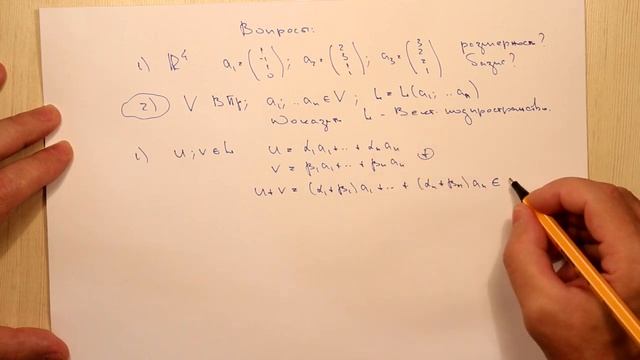 Вопросы:
1) ℝ⁴ a₁ = (1 -1 1 0); a₂ = (2 3 1 1); a₃ = (3 2 2 1) размерность?
базис?
2) V ВПр; a₁; .. aₙ ∈ V; L = L(a₁; .. aₙ)
Показать L - Вект. подпространство.
1) u; v ∈ L u = α₁a₁ + .. + αₙaₙ
v = β₁a₁ + .. + βₙaₙ ⊕
u + v = (α₁+β₁)a₁ + .. + (αₙ+βₙ)aₙ ∈